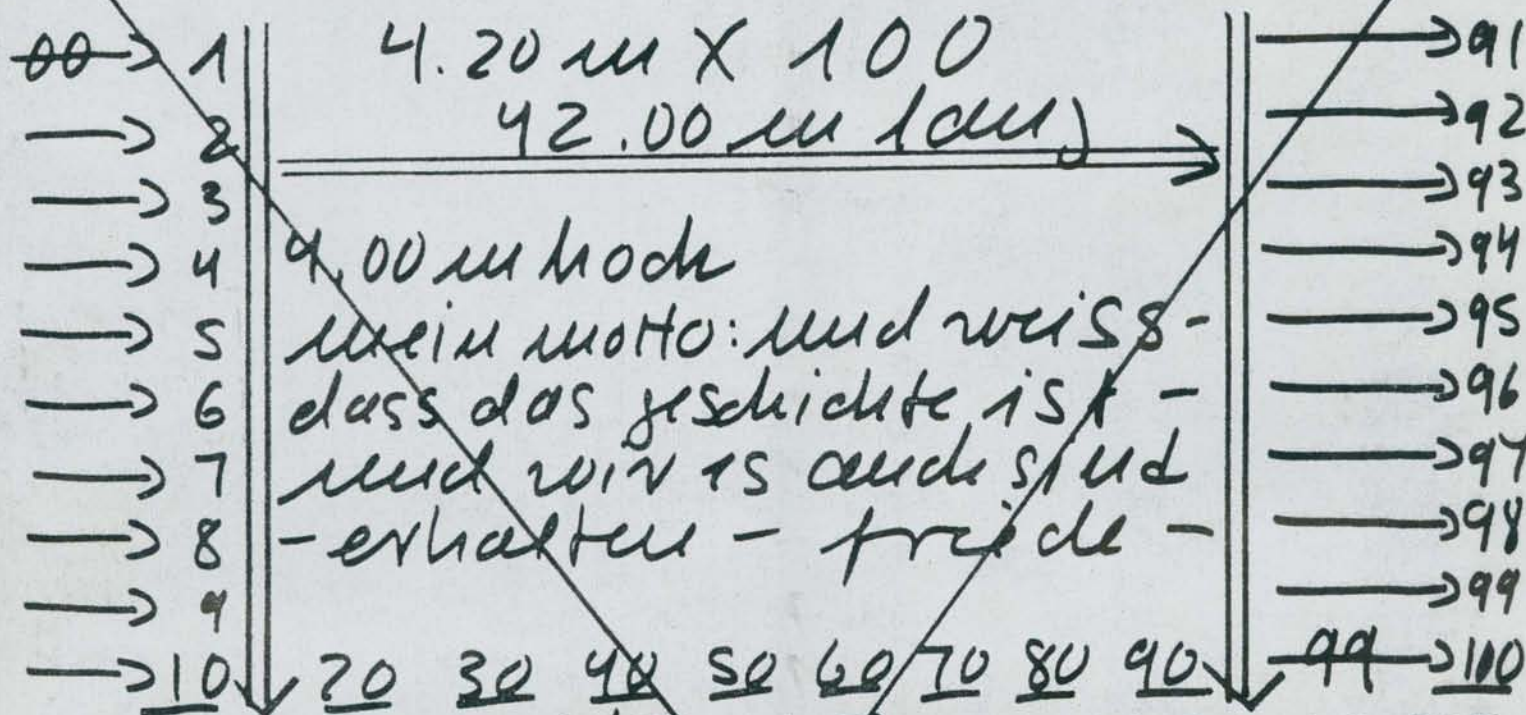 00 → 1
→ 2
→ 3
→ 4
→ 5
→ 6
→ 7
→ 8
→ 9
→ 10
4.20 m X 100
42.00 m lang
4.00 m hoch
mein motto: und weiss -
dass das geschichte ist -
und wir es auch sind
- erhalten - friede -
20 30 40 50 60 70 80 90
→ 91
→ 92
→ 93
→ 94
→ 95
→ 96
→ 97
→ 98
→ 99
99 → 100